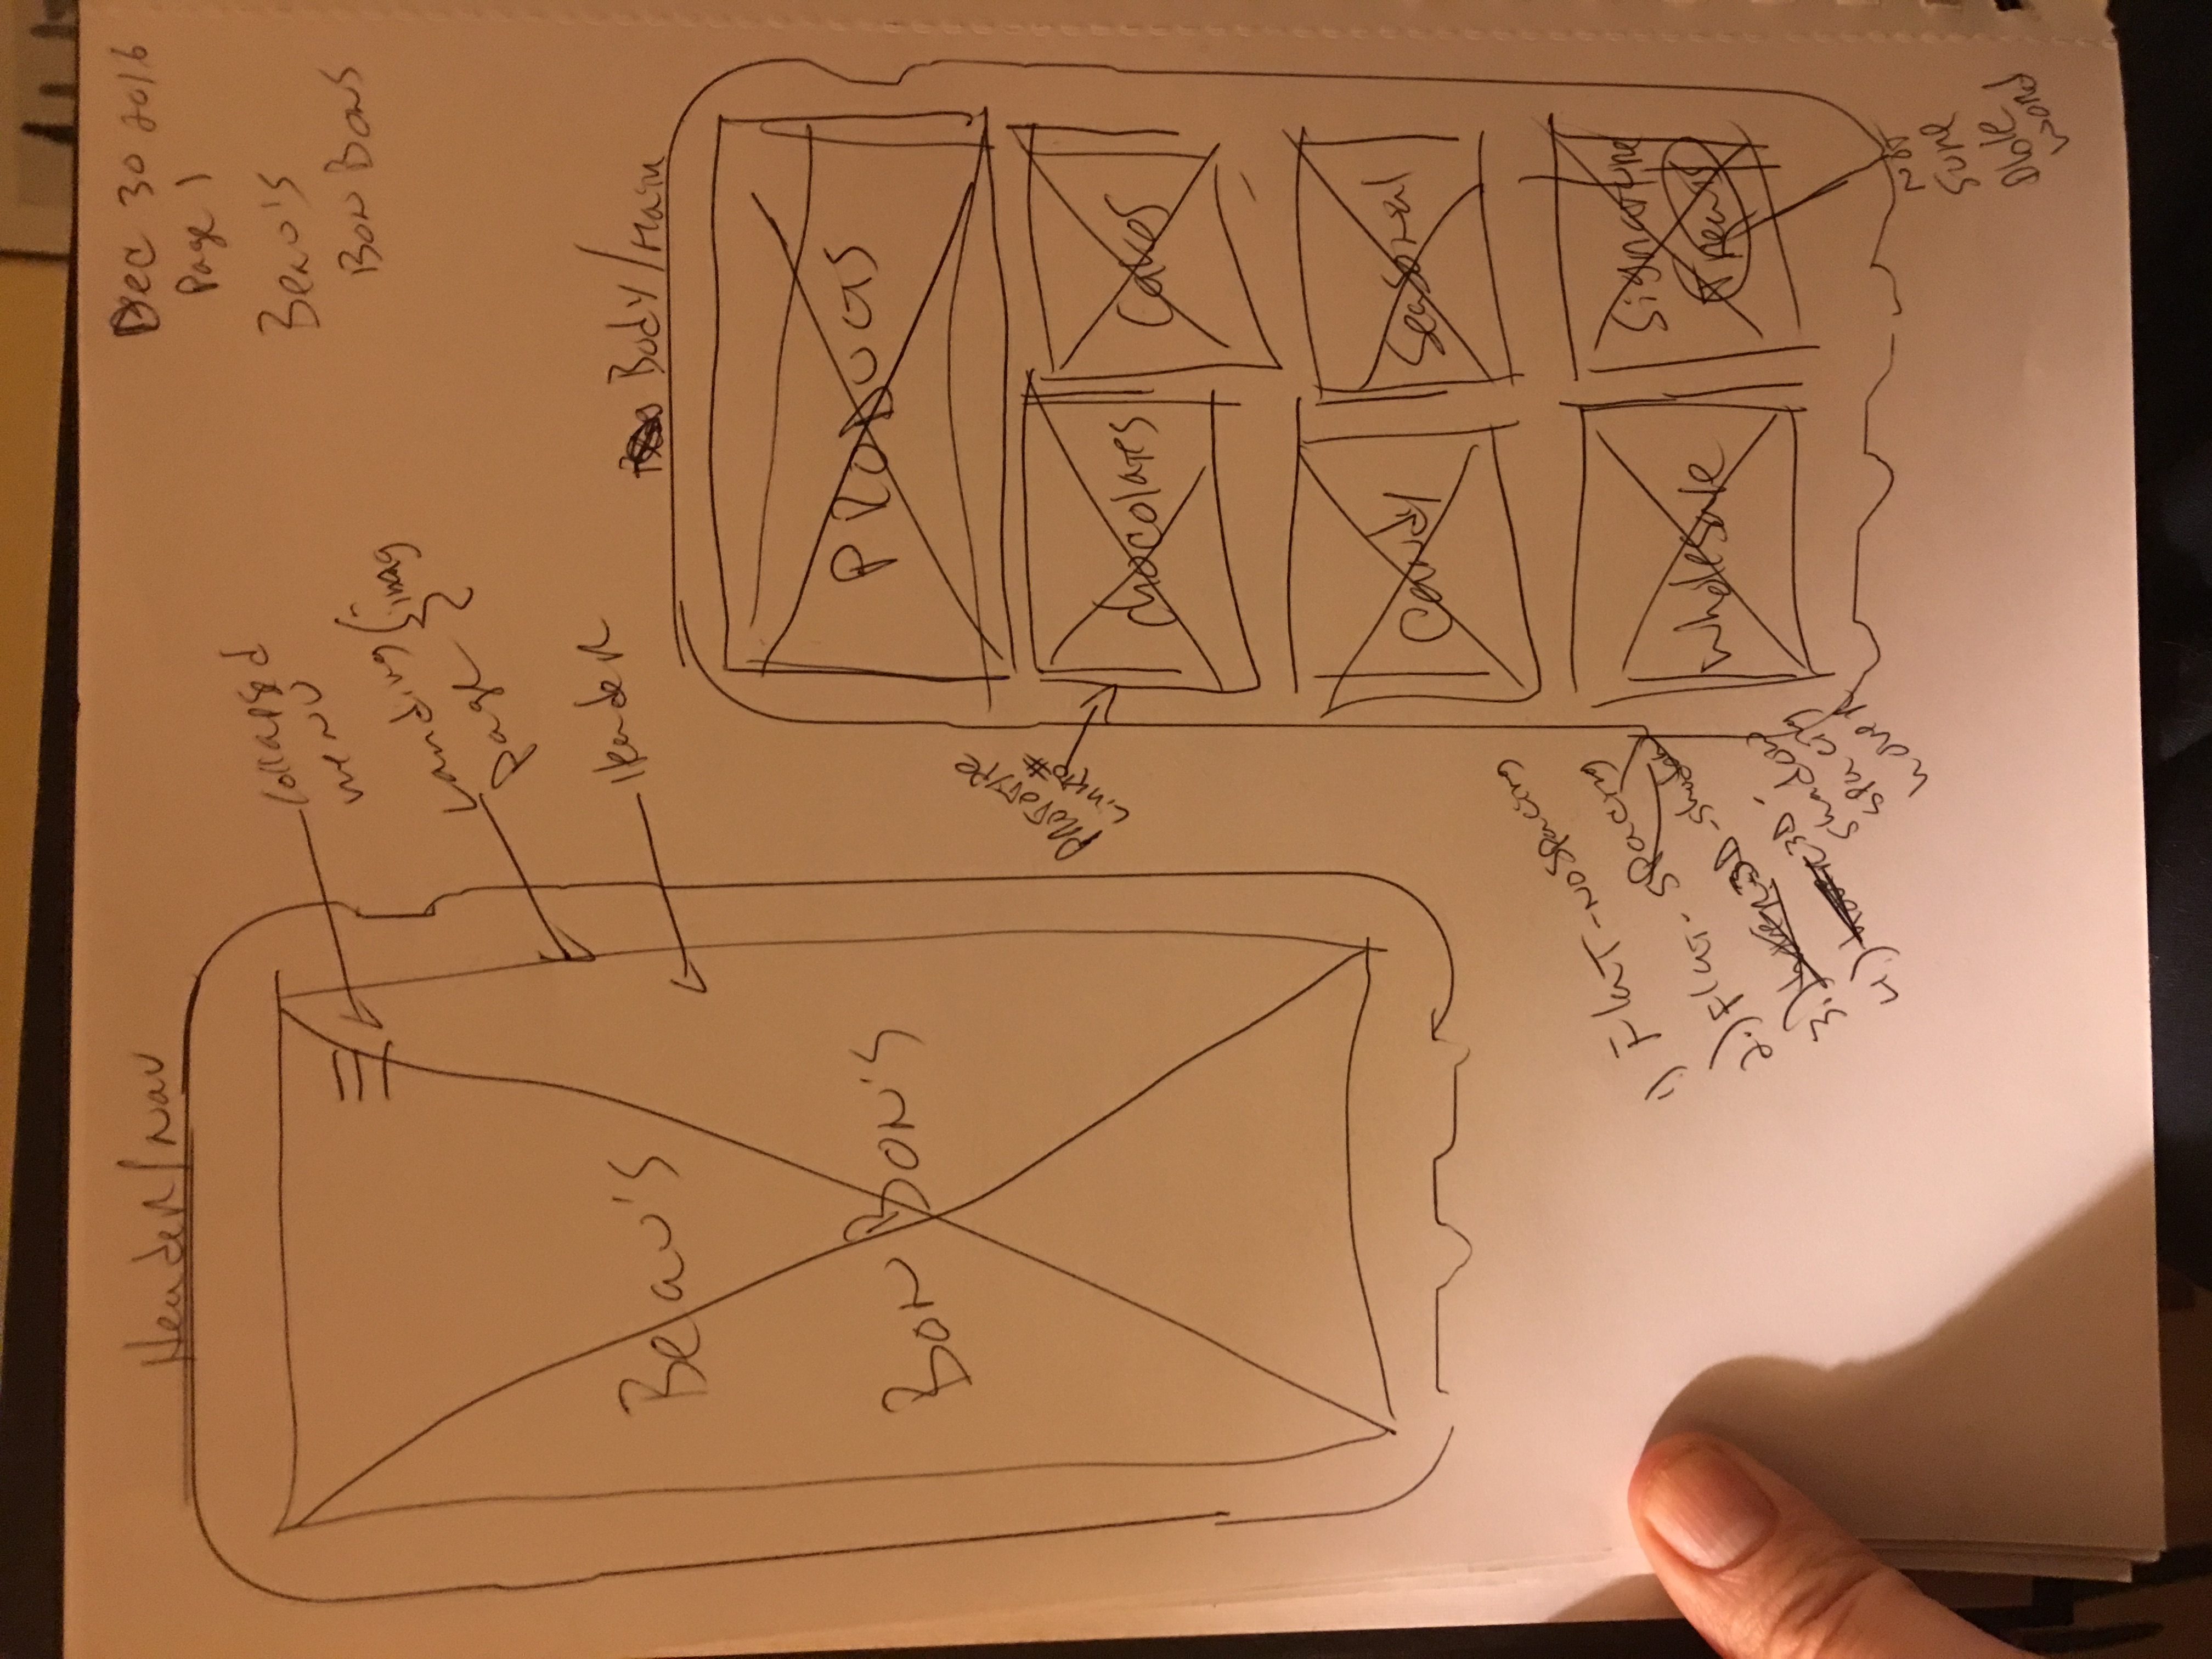 Header/Nav
Dec 30 2016
Page 1
Beau's
Bon Bons
collapsed
menu
Landing
page
imag
Header
Beau's
Bon Bon's
Body/Main
PRODUCTS
PROTOTYPE
Link to #
chocolates
cakes
candy
Seasonal
wholesale
Signature
Treats
1) Flat-no spacing
2.) Flat-spacing
3.) 3D-shadow
4.) 3D-
shadow
spacing
hover
NOT
Sure
Dble
word